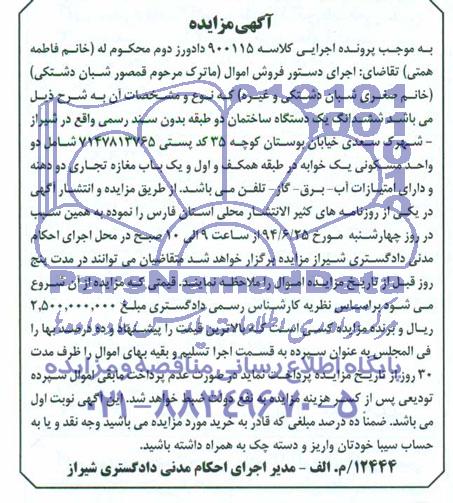 آگهی مزایده
به موجب پرونده اجرایی کلاسه ۹۰۰۱۱۵ دادورز دوم محکوم له (خانم فاطمه
همتی) تقاضای: اجرای دستور فروش اموال (ماترک مرحوم قمصور شبان دشتکی)
(خانم صغری شبان دشتکی و غیره) که نوع و مشخصات آن به شرح ذیل
می باشد ششدانگ یک دستگاه ساختمان دو طبقه بدون سند رسمی واقع در شیراز
- شهرک سعدی خیابان بوستان کوچه ۳۵ کد پستی ۷۱۴۷۸۱۳۷۶۵ شامل دو
واحد مسکونی یک خوابه در طبقه همکف و اول و یک باب مغازه تجاری دو دهنه
و دارای امتیازات آب- برق- گاز- تلفن می باشد. از طریق مزایده و انتشار آگهی
در یکی از روزنامه های کثیر الانتشار محلی استان فارس را نموده به همین سبب
در روز چهارشنبه مورخ ۹۴/۶/۲۵ از ساعت ۹ الی ۱۰ صبح در محل اجرای احکام
مدنی دادگستری شیراز مزایده برگزار خواهد شد متقاضیان می توانند در مدت پنج
روز قبل از تاریخ مزایده اموال را ملاحظه نمایند. قیمتی که مزایده از آن شروع
می شود براساس نظریه کارشناس رسمی دادگستری مبلغ ۲,۵۰۰,۰۰۰,۰۰۰
ریال و برنده مزایده کسی است که بالاترین قیمت را پیشنهاد و ده درصد بها را
فی المجلس به عنوان سپرده به قسمت اجرا تسلیم و بقیه بهای اموال را ظرف مدت
۳۰ روز از تاریخ مزایده پرداخت نماید در صورت عدم پرداخت مابقی اموال سپرده
تودیعی پس از کسر هزینه مزایده به نفع دولت ضبط خواهد شد. این آگهی نوبت اول
می باشد. ضمنا ده درصد مبلغی که قادر به خرید مورد مزایده می باشید وجه نقد و یا به
حساب سیبا خودتان واریز و دسته چک به همراه داشته باشید.
۱۲۴۴۴/م. الف - مدیر اجرای احکام مدنی دادگستری شیراز
ParsNamadData
پایگاه اطلاع رسانی مناقصه و مزایده
۰۲۱-۸۸۳۴۹۶۷۰-۵